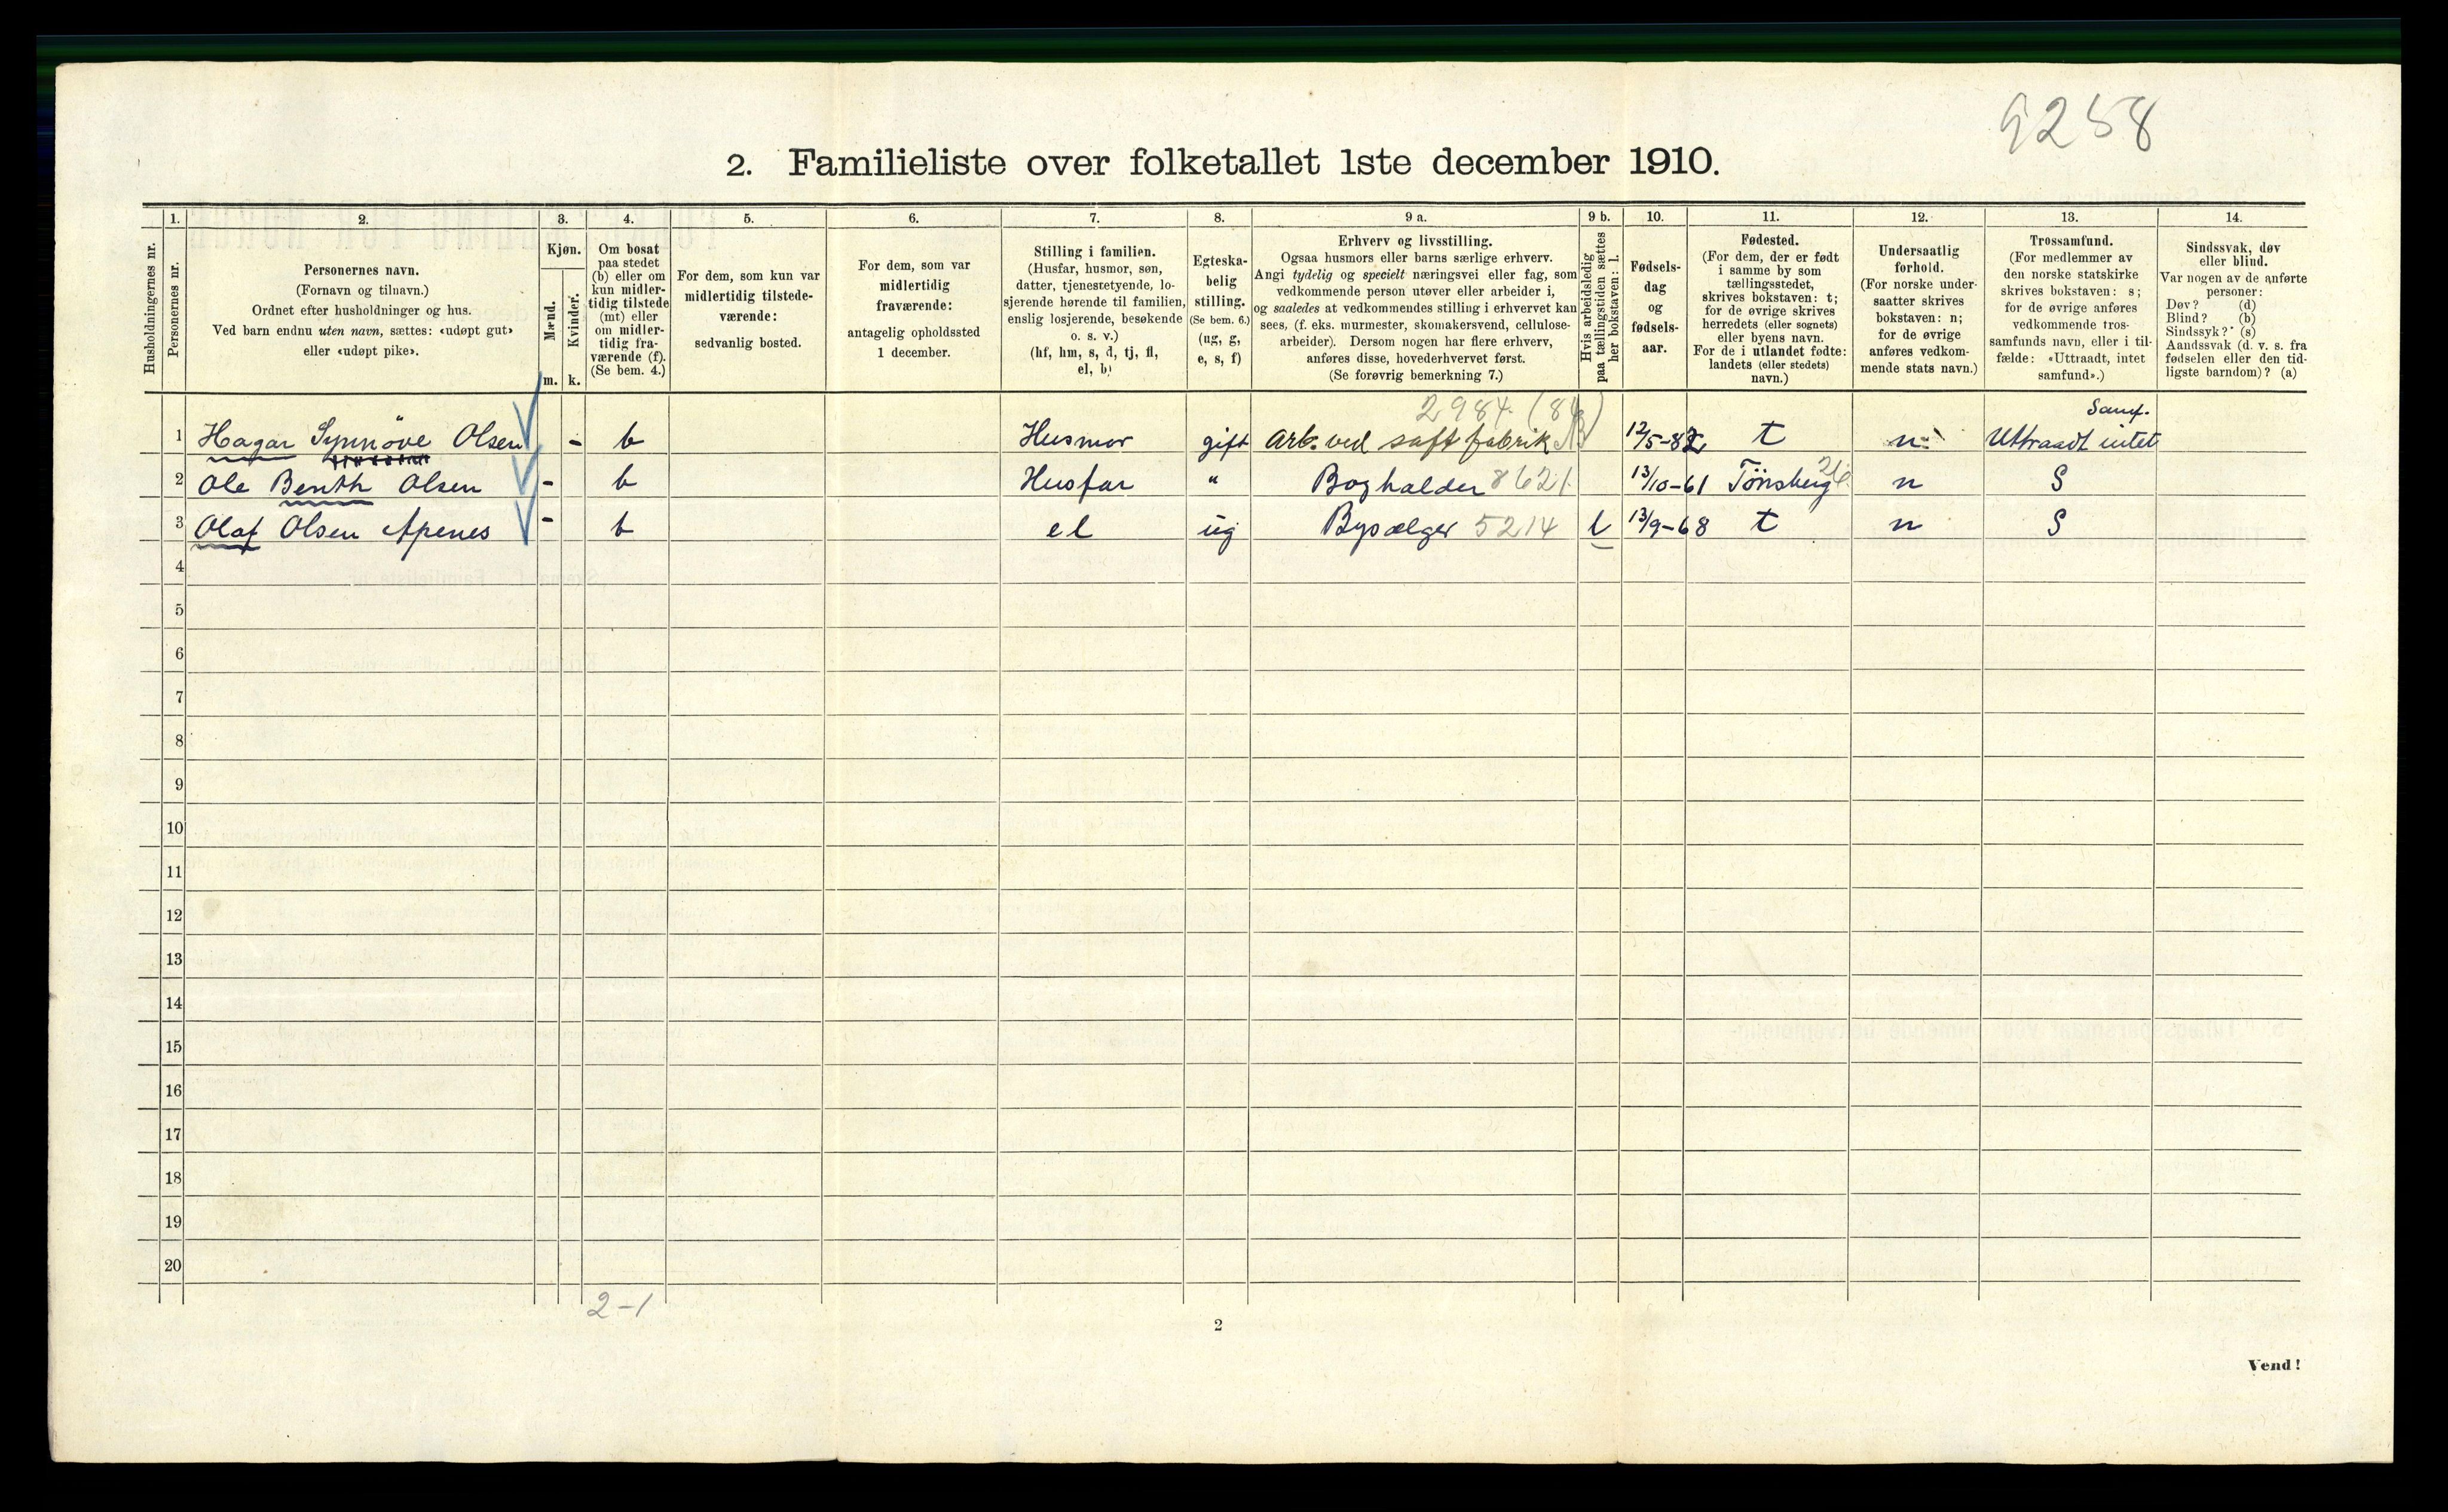 9258
2. Familieliste over folketallet 1ste december 1910.
1. 2. 3. 4. 5. 6. 7. 8. 9 a. 9 b. 10. 11. 12. 13. 14.
Husholdningernes nr.
Personernes nr.
Personernes navn.
(Fornavn og tilnavn.)
Ordnet efter husholdninger og hus.
Ved barn endnu uten navn, sættes: «udøpt gut»
eller «udøpt pike».
Kjøn.
Mænd.
Kvinder.
m. k.
Om bosat
paa stedet
(b) eller om
kun midler-
tidig tilstede
(mt) eller
om midler-
tidig fra-
værende (f).
(Se bem. 4.)
For dem, som kun var
midlertidig tilstede-
værende:
sedvanlig bosted.
For dem, som var
midlertidig
fraværende:
antagelig opholdssted
1 december.
Stilling i familien.
(Husfar, husmor, søn,
datter, tjenestetyende, lo-
sjerende hørende til familien,
enslig losjerende, besøkende
o. s. v.)
(hf, hm, s, d, tj, fl,
el, b)
Egteska-
belig
stilling.
(Se bem. 6.)
(ug, g,
e, s, f)
Erhverv og livsstilling.
Ogsaa husmors eller barns særlige erhverv.
Angi tydelig og specielt næringsvei eller fag, som
vedkommende person utøver eller arbeider i,
og saaledes at vedkommendes stilling i erhvervet kan
sees, (f. eks. murmester, skomakersvend, cellulose-
arbeider). Dersom nogen har flere erhverv,
anføres disse, hovederhvervet først.
(Se forøvrig bemerkning 7.)
Hvis arbeidsledig
paa tællingstiden sættes
her bokstaven: l.
Fødsels-
dag
og
fødsels-
aar.
Fødested.
(For dem, der er født
i samme by som
tællingsstedet,
skrives bokstaven: t;
for de øvrige skrives
herredets (eller sognets)
eller byens navn.
For de i utlandet fødte:
landets (eller stedets)
navn.)
Undersaatlig
forhold.
(For norske under-
saatter skrives
bokstaven: n;
for de øvrige
anføres vedkom-
mende stats navn.)
Trossamfund.
(For medlemmer av
den norske statskirke
skrives bokstaven: s;
for de øvrige anføres
vedkommende tros-
samfunds navn, eller i til-
fælde: «Uttraadt, intet
samfund».)
Sindssvak, døv
eller blind.
Var nogen av de anførte
personer:
Døv? (d)
Blind? (b)
Sindssyk? (s)
Aandssvak (d. v. s. fra
fødselen eller den tid-
ligste barndom)? (a)
2984. (84) Samf.
1 Hagar Synnöve Olsen - b Husmor gift Arb. ved saft fabrik 12/5-82 t n Uttraadt intet
2 Ole Benth Olsen - b Husfar " Bogholder 8621 13/10-61 Tönsberg n S
3 Olaf Olsen Apenes - b el ug Bysælger 5214 l 13/9-68 t n S
4
5
6
7
8
9
10
11
12
13
14
15
16
17
18
19
20
2-1
2
Vend!